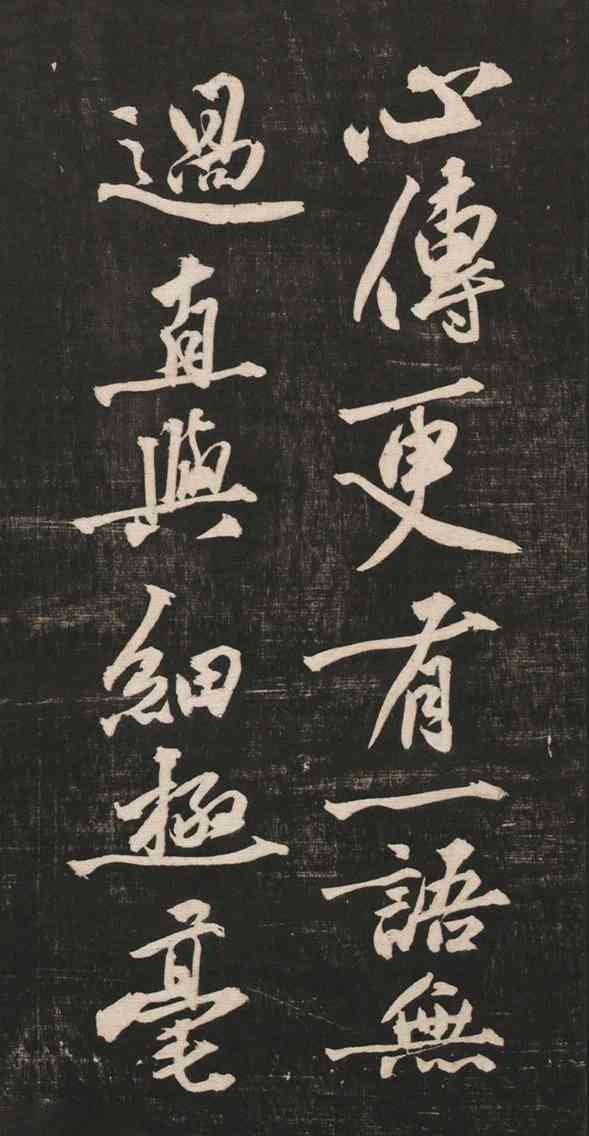 心傳更有一語無
過直與細極毫